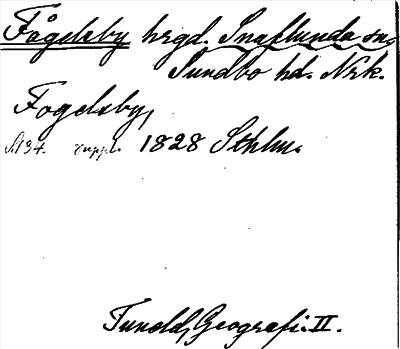 Fågelsby hrgd. Snaflunda sn.
Sundbo hd. Nrk.
Fogelsby,
s. 134. uppl. 1828 Sthlm.
Tuneld, Geografi. II.